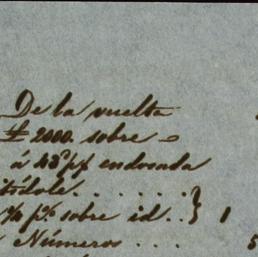 De la vuelta
£ 2000. sobre
á 48 p/f endosada
título . . . . . .
% p% sobre id . . } 1
Números . . . 5